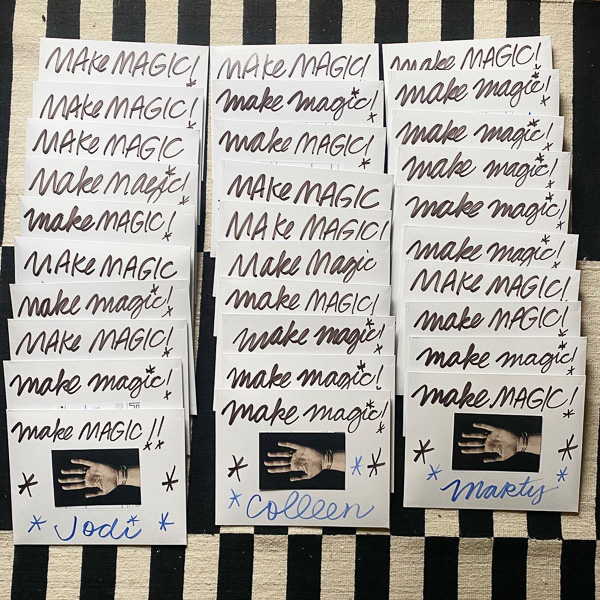 MAKe MAGIC!
MAKe MAGIC!
MAKe MAGIC
Make magic!
make MAGIC!
MAKe MAGIC
make magic!
MAKe MAGIC!
make magic!
make MAGIC!!
Jodi
MAKe MAGIC!
make magic!
make MAGIC!
MAKe MAGIC
MAKe MAGIC!
Make Magic
make MAGIC!
make magic!
make magic!
make magic!
Colleen
make MAGIC!
make magic!
make magic!
make magic!
make magic!
make magic!
MAKe MAGIC!
make MAGIC!
make magic!
make MAGIC!
Marty